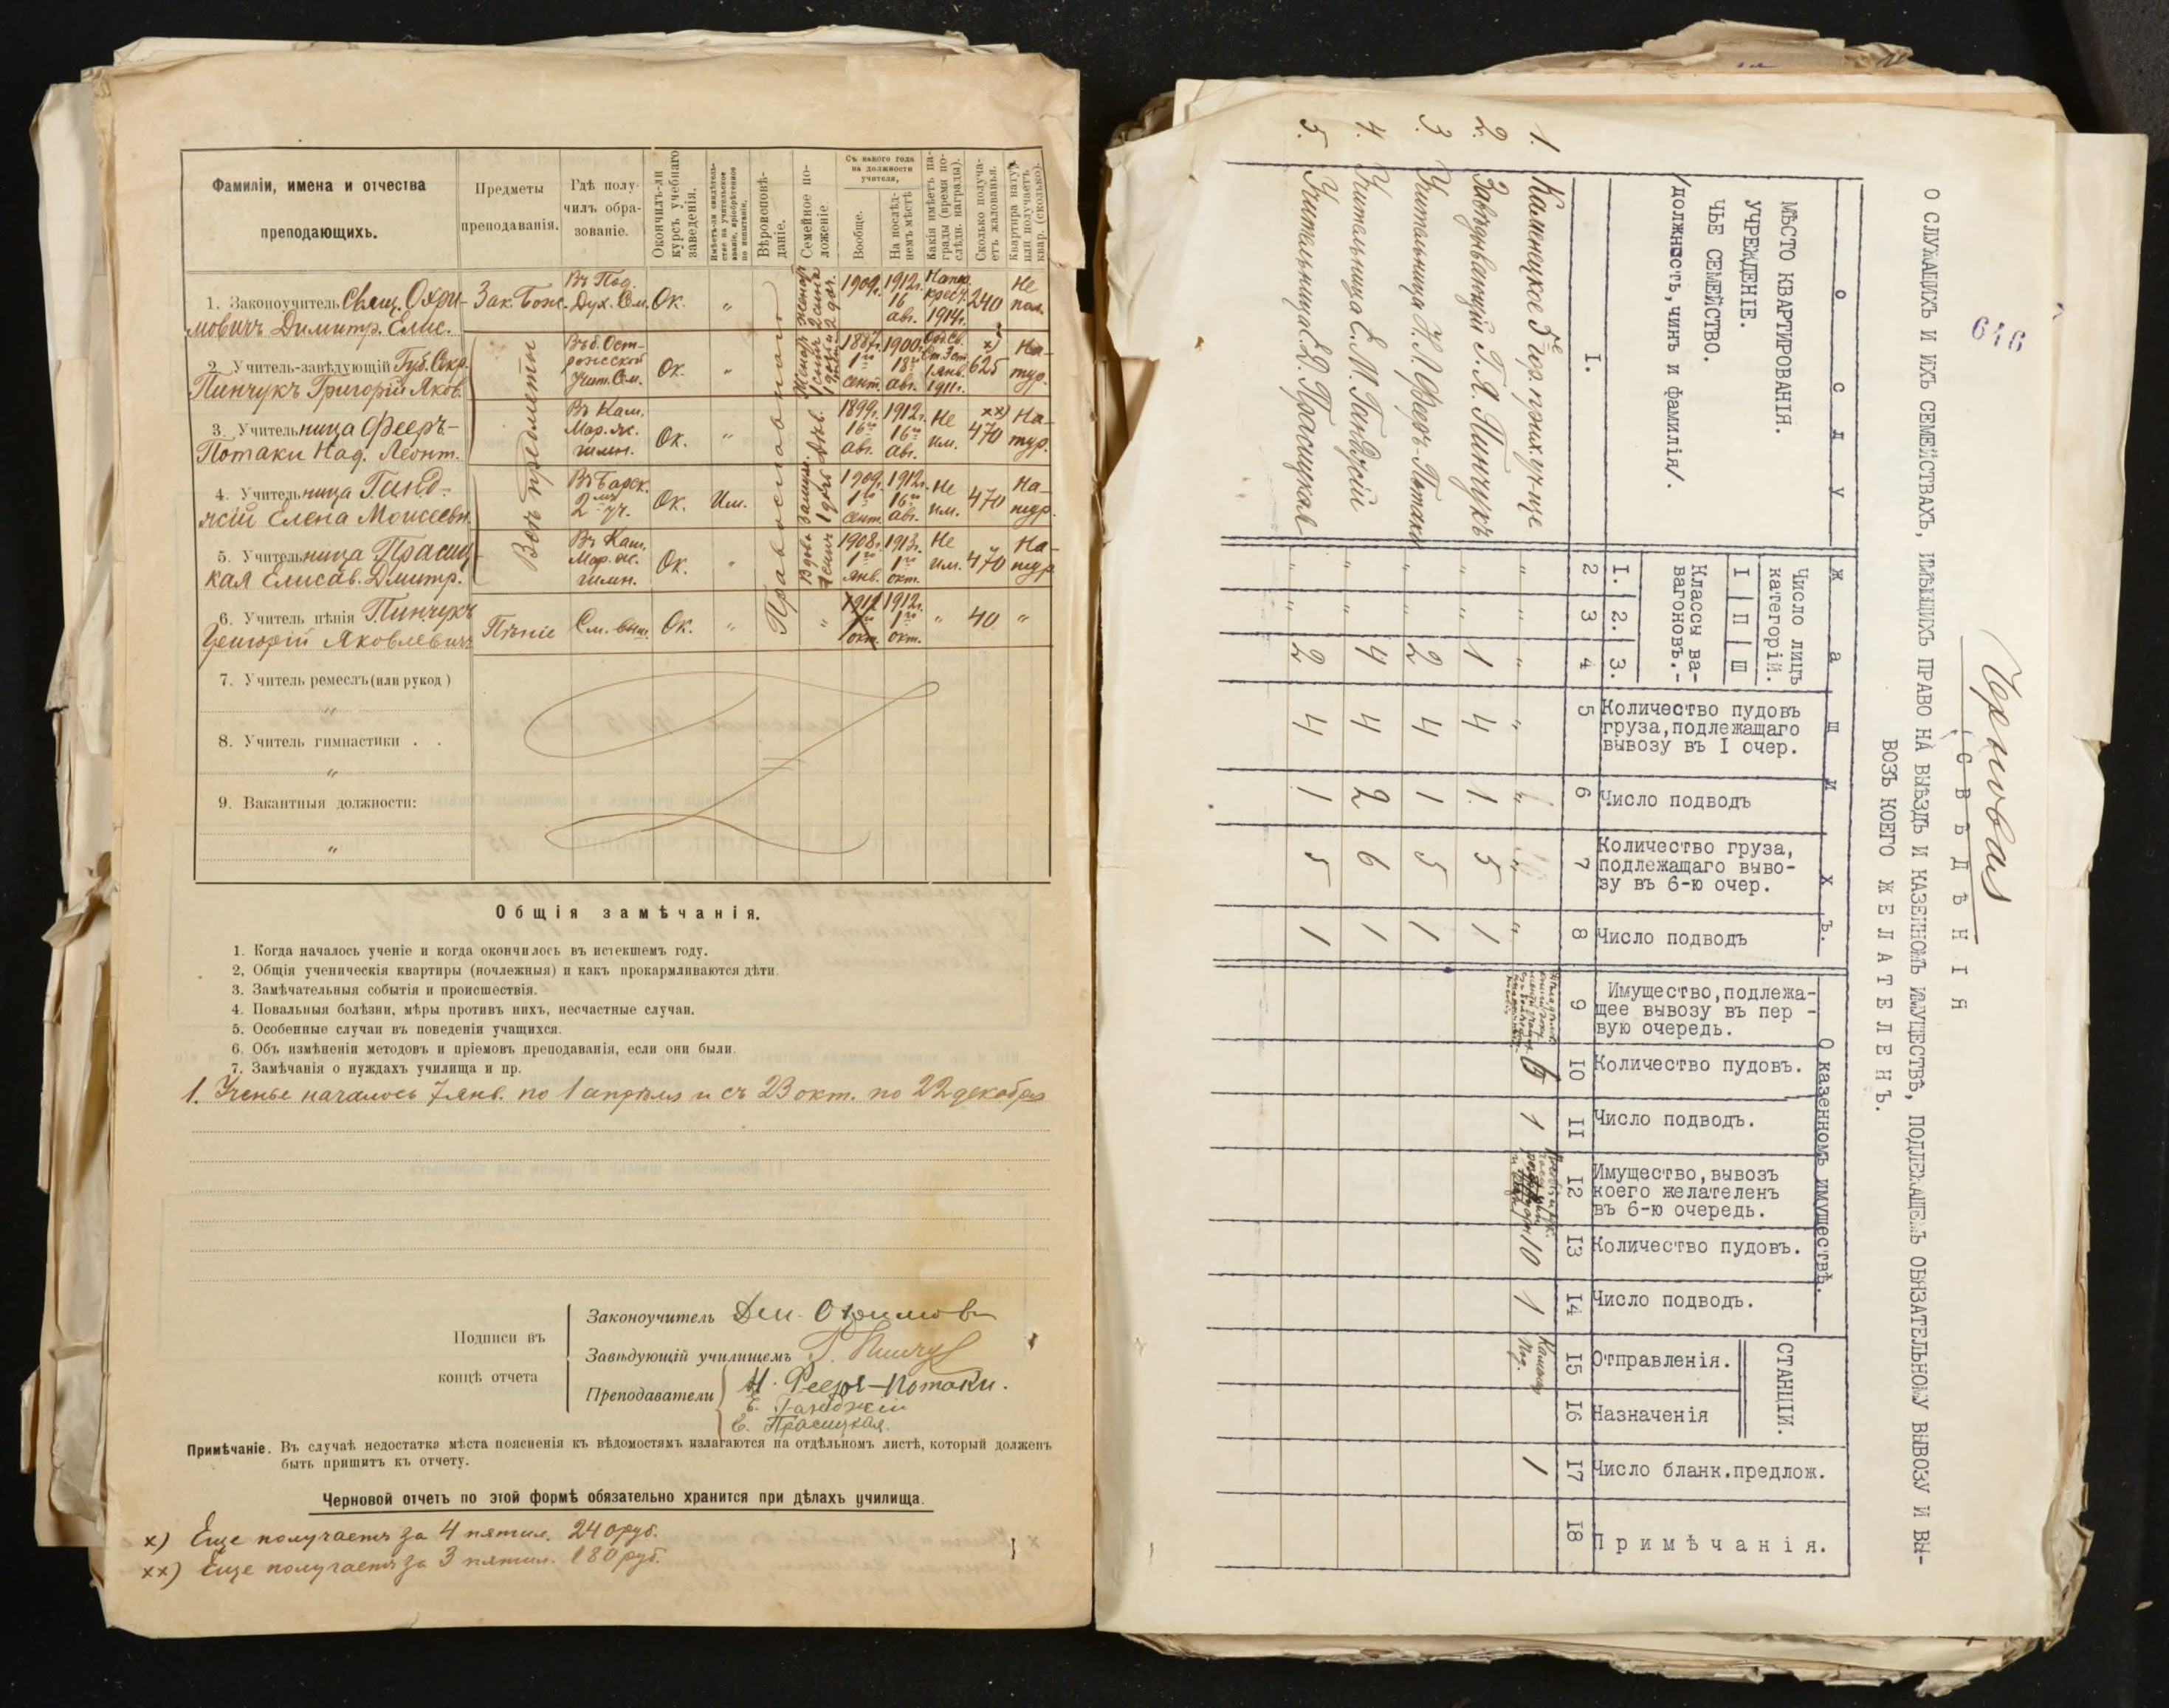 Фамиліи, имена и отчества
преподающихъ.
Предметы
преподаванія.
Гдѣ полу-
чилъ обра-
зованіе.
Окончилъ-ли
курсъ учебнаго
заведенія.
Имѣетъ-ли свидѣтель-
ство на учительское
званіе, пріобрѣтенное
по испытанію.
Вѣроисповѣ-
даніе.
Семейное по-
ложеніе.
Съ какого года
на должности
учителя,
Вообще.
На послѣд-
немъ мѣстѣ
Какія имѣетъ на-
грады (время по-
слѣдн. награды).
Сколько получа-
етъ жалованья.
Квартира натур.
или получаетъ
квар. (сколько).
1. Законоучитель Свящ. Охри-
мовичъ Димитр. Елис.
Зак. Бож.
Въ Под.
Дух. Сем.
Ок.
"
1909г.
1912г.
16
авг.
Напер.
крест.
1914г.
240
Не
пол.
2. Учитель-завѣдующій Губ. Секр.
Пинчукъ Григорій Яков.
Въ б. Ост-
рожской
Учит. Сем.
Ок.
"
1887г.
1го
сент.
1900г.
18го
авг.
1 янв.
1911г.
х)
625
На-
тур.
3. Учительница Фееръ-
Потаки Над. Леонт.
Въ Кам.
Мар. ж.
гимн.
Ок.
"
1899г.
16го
авг.
1912г.
16го
авг.
Не
им.
хх)
470
На-
тур.
4. Учительница Ганд-
жій Елена Моисеевн.
Въ Барск.
2 уч.
Ок.
Им.
1909г.
1го
сент.
1912г.
16го
авг.
Не
им.
470
На-
тур.
5. Учительница Прасиц-
кая Елисав. Дмитр.
Въ Кам.
Мар. ж.
гимн.
Ок.
"
1908г.
1го
янв.
1913г.
1го
окт.
Не
им.
470
На-
тур.
6. Учитель пѣнія Пинчукъ
Григорій Яковлевичъ
Пѣніе
См. выш.
Ок.
"
"
1912г.
1го
окт.
"
40
"
Всѣ предметы
Православнаго
7. Учитель ремеслъ (или рукод.)
"
8. Учитель гимнастики . .
"
9. Вакантныя должности:
"
Общія замѣчанія.
1. Когда началось ученіе и когда окончилось въ истекшемъ году.
2, Общія ученическія квартиры (ночлежныя) и какъ прокармливаются дѣти.
3. Замѣчательныя событія и происшествія.
4. Повальныя болѣзни, мѣры противъ нихъ, несчастные случаи.
5. Особенные случаи въ поведеніи учащихся.
6. Объ измѣненіи методовъ и пріемовъ преподаванія, если они были.
7. Замѣчанія о нуждахъ училища и пр.
1. Ученье началось 7 янв. по 1 апрѣля и съ 23 окт. по 22 декабря
Подписи въ
концѣ отчета
Законоучитель Дим. Охримов
Завѣдующій училищемъ Г. Пинчук
Преподаватели Н. Фееръ-Потаки.
Е. Ганджій
Е. Прасицкая.
Примѣчаніе. Въ случаѣ недостатка мѣста поясненія къ вѣдомостямъ излагаются на отдѣльномъ листѣ, который долженъ
быть пришитъ къ отчету.
Черновой отчетъ по этой формѣ обязательно хранится при дѣлахъ училища.
х) Еще получаетъ за 4 пятил. 240 руб.
хх) Еще получаетъ за 3 пятил. 180 руб.
646
Черновая
СВѢДѢНІЯ
О СЛУЖАЩИХЪ И ИХЪ СЕМЕЙСТВАХЪ, ИМѢЮЩИХЪ ПРАВО НА ВЫѢЗДЪ И КАЗЕННОМЪ ИМУЩЕСТВѢ, ПОДЛЕЖАЩЕМЪ ОБЯЗАТЕЛЬНОМУ ВЫВОЗУ И ВЫ-
ВОЗЪ КОЕГО ЖЕЛАТЕЛЕНЪ.
О СЛУЖАЩИХЪ.
О казенномъ имуществѣ.
СТАНЦІИ.
МѢСТО КВАРТИРОВАНІЯ.
УЧРЕЖДЕНІЕ.
ЧЬЕ СЕМЕЙСТВО.
/должность, чинъ и фамилія/.
Число лицъ
категорій.
I | П | Ш
Классы ва-
вагоновъ.-
I. | 2. | 3.
Количество пудовъ
груза, подлежащаго
вывозу въ I очер.
Число подводъ
Количество груза,
подлежащаго выво-
зу въ 6-ю очер.
Число подводъ
Имущество, подлежа-
щее вывозу въ пер -
вую очередь.
Количество пудовъ.
Число подводъ.
Имущество, вывозъ
коего желателенъ
въ 6-ю очередь.
Количество пудовъ.
Число подводъ.
Отправленія.
Назначенія
Число бланк.предлож.
Примѣчанія.
I. 2 3 4 5 6 7 8 9 I0 II I2 I3 I4 I5 I6 I7 I8
1. Каменецкое 5е гор. прих. уч-ще " " " " " " " 5 1 10 1 Каменец Под. 1
2. Завѣдывающій Г. Я. Пинчукъ " " 1 4 1 5 1
3. Учительница Н. Л. Фееръ-Потаки " " 2 4 1 5 1
4. Учительница Е. М. Ганджій " " 4 4 2 6 1
5. Учительница Е. Д. Прасицкая " " 2 4 1 5 1